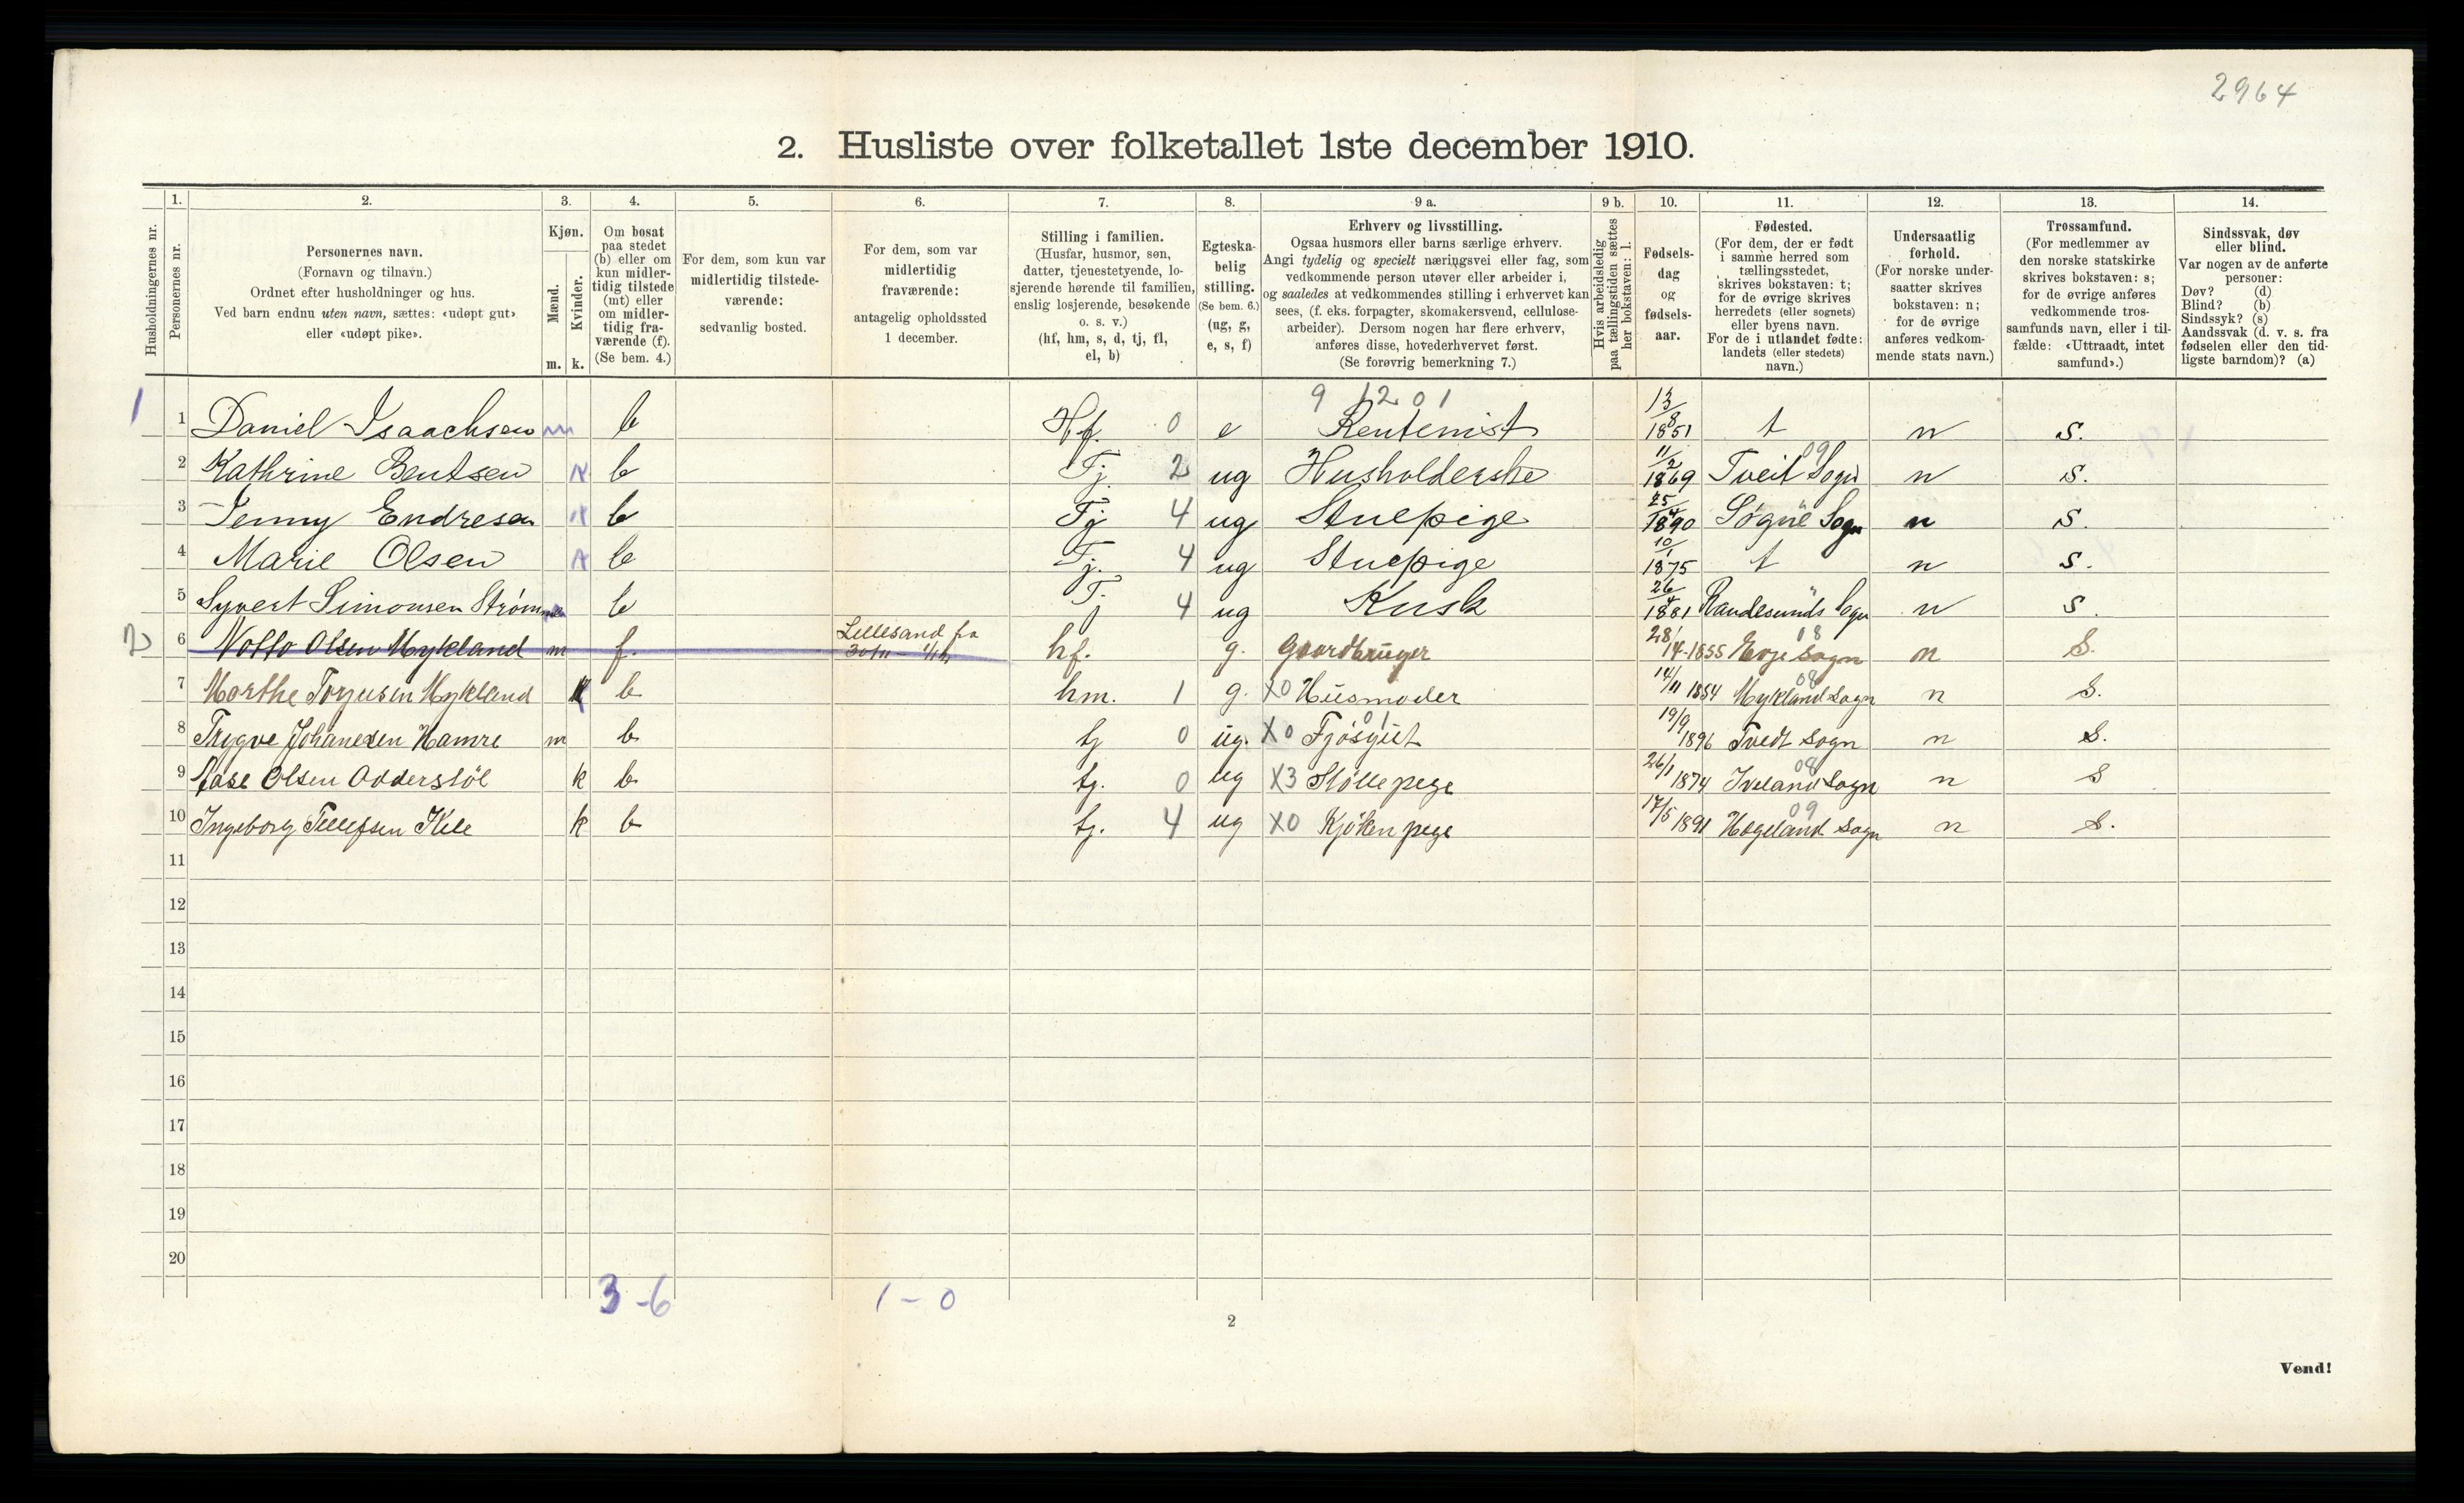 2964
2. Husliste over folketallet 1ste december 1910.
1. 2. 3. 4. 5. 6. 7. 8. 9 a. 9 b. 10. 11. 12. 13. 14.
Husholdningernes nr.
Personernes nr.
Personernes navn.
(Fornavn og tilnavn.)
Ordnet efter husholdninger og hus.
Ved barn endnu uten navn, sættes: «udøpt gut»
eller «udøpt pike».
Kjøn.
Mænd.
Kvinder.
m. k.
Om bosat
paa stedet
(b) eller om
kun midler-
tidig tilstede
(mt) eller
om midler-
tidig fra-
værende (f).
(Se bem. 4.)
For dem, som kun var
midlertidig tilstede-
værende:
sedvanlig bosted.
For dem, som var
midlertidig
fraværende:
antagelig opholdssted
1 december.
Stilling i familien.
(Husfar, husmor, søn,
datter, tjenestetyende, lo-
sjerende hørende til familien,
enslig losjerende, besøkende
o. s. v.)
(hf, hm, s, d, tj, fl,
el, b)
Egteska-
belig
stilling.
(Se bem. 6.)
(ug, g,
e, s, f)
Erhverv og livsstilling.
Ogsaa husmors eller barns særlige erhverv.
Angi tydelig og specielt næringsvei eller fag, som
vedkommende person utøver eller arbeider i,
og saaledes at vedkommendes stilling i erhvervet kan
sees, (f. eks. forpagter, skomakersvend, cellulose-
arbeider). Dersom nogen har flere erhverv,
anføres disse, hovederhvervet først.
(Se forøvrig bemerkning 7.)
Hvis arbeidsledig
paa tællingstiden sættes
her bokstaven: l.
Fødsels-
dag
og
fødsels-
aar.
Fødested.
(For dem, der er født
i samme herred som
tællingsstedet,
skrives bokstaven: t;
for de øvrige skrives
herredets (eller sognets)
eller byens navn.
For de i utlandet fødte:
landets (eller stedets)
navn.)
Undersaatlig
forhold.
(For norske under-
saatter skrives
bokstaven: n;
for de øvrige
anføres vedkom-
mende stats navn.)
Trossamfund.
(For medlemmer av
den norske statskirke
skrives bokstaven: s;
for de øvrige anføres
vedkommende tros-
samfunds navn, eller i til-
fælde: «Uttraadt, intet
samfund».)
Sindssvak, døv
eller blind.
Var nogen av de anførte
personer:
Døv? (d)
Blind? (b)
Sindssyk? (s)
Aandssvak (d. v. s. fra
fødselen eller den tid-
ligste barndom)? (a)
9 1201
1 1 Daniel Isaachsen m b Hf. 0 e Rentenist 13/8 1851 t n s.
2 Kathrine Bentsen k b Tj. 2 ug Husholderske 11/2 1869 Tveit Sogn 09 n s.
3 Jenny Endresen k b Tj 4 ug Stuepige 25/4 1890 Søgne Sogn n s.
4 Marie Olsen k b Tj. 4 ug Stuepige 10/1 1875 t n s.
5 Syvert Simonsen Strømme m b Tj 4 ug Kusk 26/4 1881 Randesunds Sogn n s.
2 6 Notto Olsen Mykland m f. Lillesand fra 30/11 - hf. g. Gaardbruger 28/4-1855 Evje Sogn 08 n S.
7 Marthe Torjusen Mykland k b hm. 1 g. X0 Husmoder 14/11 1854 Mykland Sogn 08 n S.
8 Trygve Johanesen Hamre m b tj 0 ug. X0 Fjøsgut 01 19/9 1896 Tvedt Sogn n S.
9 Aase Olsen Odderstøl k b tj. 0 ug X3 Støllepege 26/1 1874 Iveland Sogn 08 n S
10 Ingeborg Tellefsen Kile k b tj. 4 ug X0 Kjøken pege 17/5 1891 Hægeland Sogn 09 n S.
11
12
13
14
15
16
17
18
19
20
3-6 1-0
2
Vend!